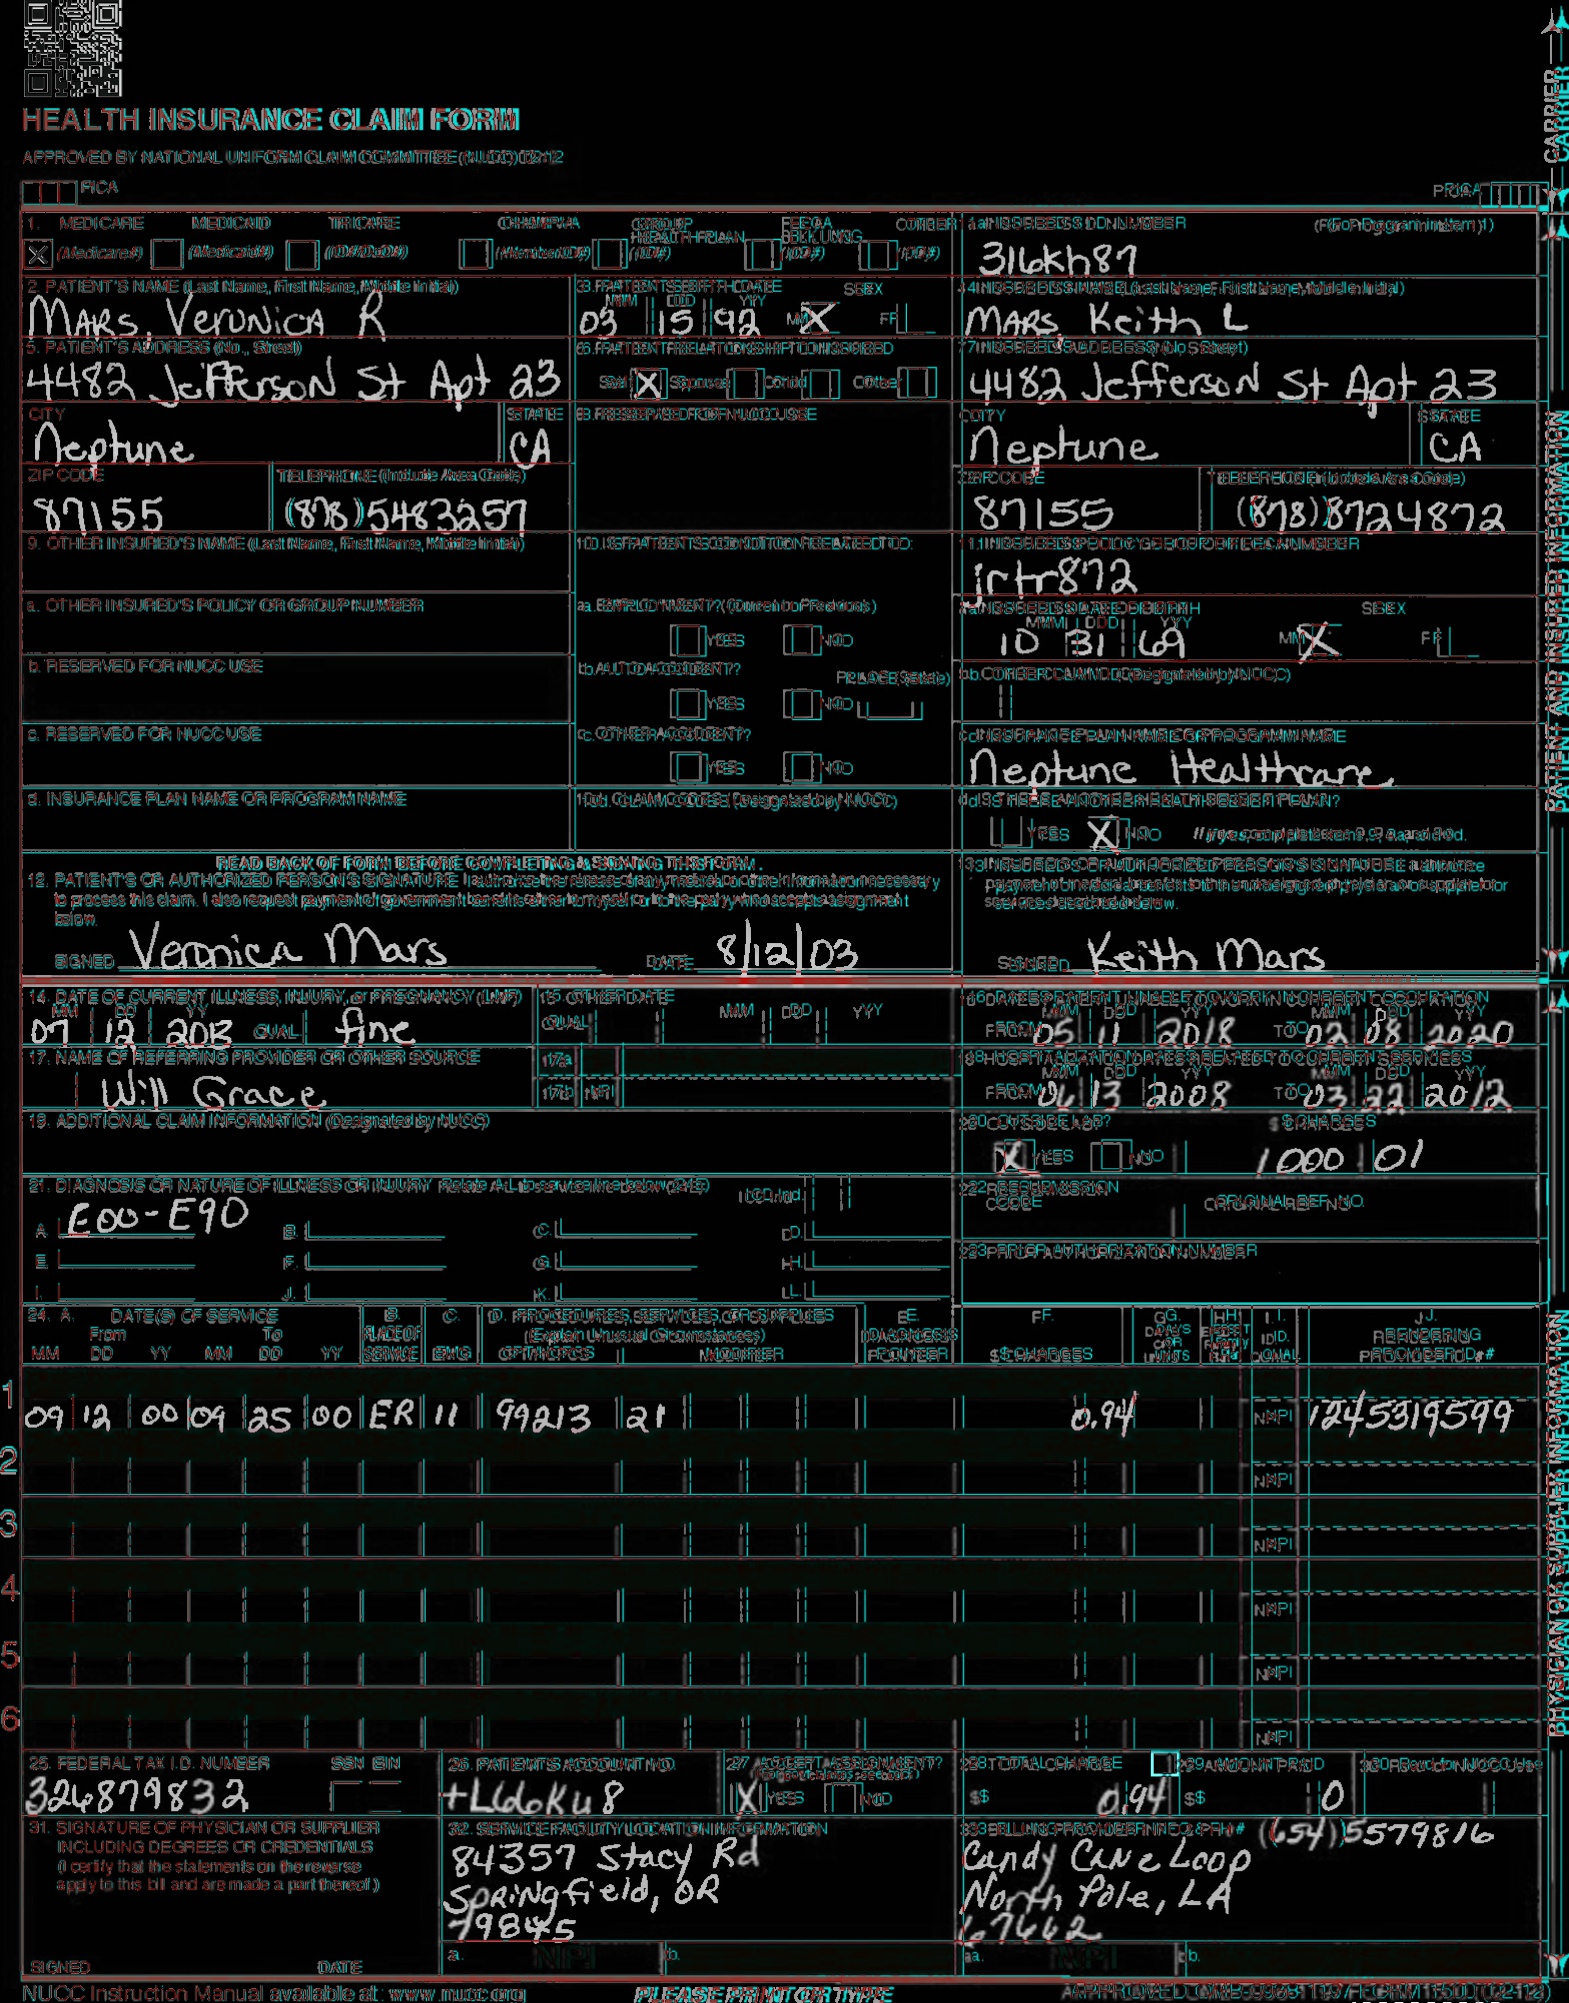 HEALTH INSURANCE CLAIM FORM
APPROVED BY NATIONAL UNIFORM CLAIM COMMITTEE (NUCC) 02/12
PICA
PICA
CARRIER
1. MEDICARE MEDICAID TRICARE CHAMPVA GROUP HEALTH PLAN FECA BLK LUNG OTHER
X (Medicare#) (Medicaid#) (ID#/DoD#) (Member ID#) (ID#) (ID#) (ID#)
1a. INSURED'S I.D. NUMBER (For Program in Item 1)
316kh87
2. PATIENT'S NAME (Last Name, First Name, Middle Initial)
MARS, Veronica R
3. PATIENT'S BIRTH DATE SEX
MM DD YY
03 15 92 M X F
4. INSURED'S NAME (Last Name, First Name, Middle Initial)
MARS, Keith L
5. PATIENT'S ADDRESS (No., Street)
4482 Jefferson St Apt 23
6. PATIENT RELATIONSHIP TO INSURED
Self X Spouse Child Other
7. INSURED'S ADDRESS (No., Street)
4482 Jefferson St Apt 23
CITY STATE
Neptune CA
8. RESERVED FOR NUCC USE
CITY STATE
Neptune CA
ZIP CODE TELEPHONE (Include Area Code)
87155 (878) 5483257
ZIP CODE TELEPHONE (Include Area Code)
87155 (878) 8724872
9. OTHER INSURED'S NAME (Last Name, First Name, Middle Initial)
10. IS PATIENT'S CONDITION RELATED TO:
11. INSURED'S POLICY GROUP OR FECA NUMBER
jrtr872
a. OTHER INSURED'S POLICY OR GROUP NUMBER
a. EMPLOYMENT? (Current or Previous)
YES NO
a. INSURED'S DATE OF BIRTH SEX
MM DD YY
10 31 69 M X F
b. RESERVED FOR NUCC USE
b. AUTO ACCIDENT? PLACE (State)
YES NO
b. OTHER CLAIM ID (Designated by NUCC)
c. RESERVED FOR NUCC USE
c. OTHER ACCIDENT?
YES NO
c. INSURANCE PLAN NAME OR PROGRAM NAME
Neptune Healthcare
d. INSURANCE PLAN NAME OR PROGRAM NAME
10d. CLAIM CODES (Designated by NUCC)
d. IS THERE ANOTHER HEALTH BENEFIT PLAN?
YES X NO If yes, complete items 9, 9a, and 9d.
READ BACK OF FORM BEFORE COMPLETING & SIGNING THIS FORM.
12. PATIENT'S OR AUTHORIZED PERSON'S SIGNATURE I authorize the release of any medical or other information necessary
to process this claim. I also request payment of government benefits either to myself or to the party who accepts assignment
below.
SIGNED Veronica Mars DATE 8/12/03
13. INSURED'S OR AUTHORIZED PERSON'S SIGNATURE I authorize
payment of medical benefits to the undersigned physician or supplier for
services described below.
SIGNED Keith Mars
PATIENT AND INSURED INFORMATION
14. DATE OF CURRENT ILLNESS, INJURY, or PREGNANCY (LMP)
MM DD YY
07 12 2013 QUAL. fine
15. OTHER DATE
QUAL. MM DD YY
16. DATES PATIENT UNABLE TO WORK IN CURRENT OCCUPATION
MM DD YY MM DD YY
FROM 05 11 2018 TO 02 08 2020
17. NAME OF REFERRING PROVIDER OR OTHER SOURCE
Will Grace
17a.
17b. NPI
18. HOSPITALIZATION DATES RELATED TO CURRENT SERVICES
MM DD YY MM DD YY
FROM 06 13 2008 TO 03 22 2012
19. ADDITIONAL CLAIM INFORMATION (Designated by NUCC)
20. OUTSIDE LAB? $ CHARGES
X YES NO 1000 01
21. DIAGNOSIS OR NATURE OF ILLNESS OR INJURY Relate A-L to service line below (24E) ICD Ind.
A. E00-E90 B. C. D.
E. F. G. H.
I. J. K. L.
22. RESUBMISSION CODE ORIGINAL REF. NO.
23. PRIOR AUTHORIZATION NUMBER
24. A. DATE(S) OF SERVICE B. C. D. PROCEDURES, SERVICES, OR SUPPLIES E. F. G. H. I. J.
From To PLACE OF (Explain Unusual Circumstances) DIAGNOSIS DAYS OR UNITS EPSDT Family Plan ID. RENDERING
MM DD YY MM DD YY SERVICE EMG CPT/HCPCS MODIFIER POINTER $ CHARGES QUAL. PROVIDER ID. #
1 09 12 00 09 25 00 ER 11 99213 21 0.94 NPI 1245319599
2 NPI
3 NPI
4 NPI
5 NPI
6 NPI
25. FEDERAL TAX I.D. NUMBER SSN EIN
324879832
26. PATIENT'S ACCOUNT NO.
+L66Ku8
27. ACCEPT ASSIGNMENT?
X YES NO
28. TOTAL CHARGE
$ 0.94
29. AMOUNT PAID
$ 0
30. Rsvd for NUCC Use
31. SIGNATURE OF PHYSICIAN OR SUPPLIER
INCLUDING DEGREES OR CREDENTIALS
(I certify that the statements on the reverse
apply to this bill and are made a part thereof.)
SIGNED DATE
32. SERVICE FACILITY LOCATION INFORMATION
84357 Stacy Rd
Springfield, OR
79845
a. NPI b.
33. BILLING PROVIDER INFO & PH # (654) 5579816
Candy Cane Loop
North Pole, LA
67662
a. NPI b.
PHYSICIAN OR SUPPLIER INFORMATION
NUCC Instruction Manual available at: www.nucc.org
PLEASE PRINT OR TYPE
APPROVED OMB-0938-1197 FORM 1500 (02-12)